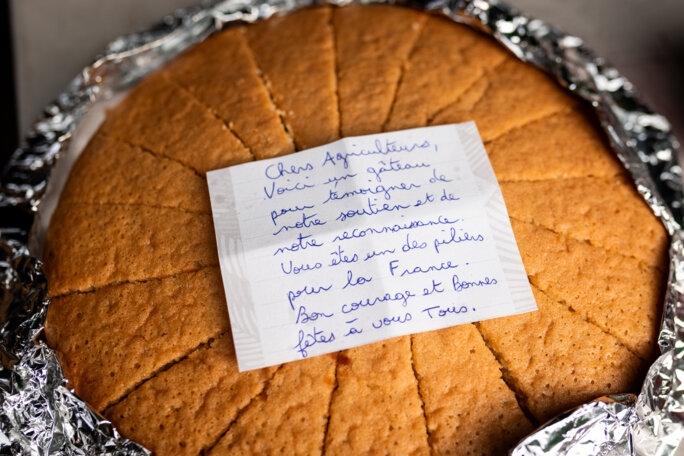 Chers Agriculteurs,
Voici un gâteau
pour témoigner de
notre soutien et de
notre reconnaissance.
Vous êtes un des piliers
pour la France.
Bon courage et Bonnes
fêtes à vous Tous.